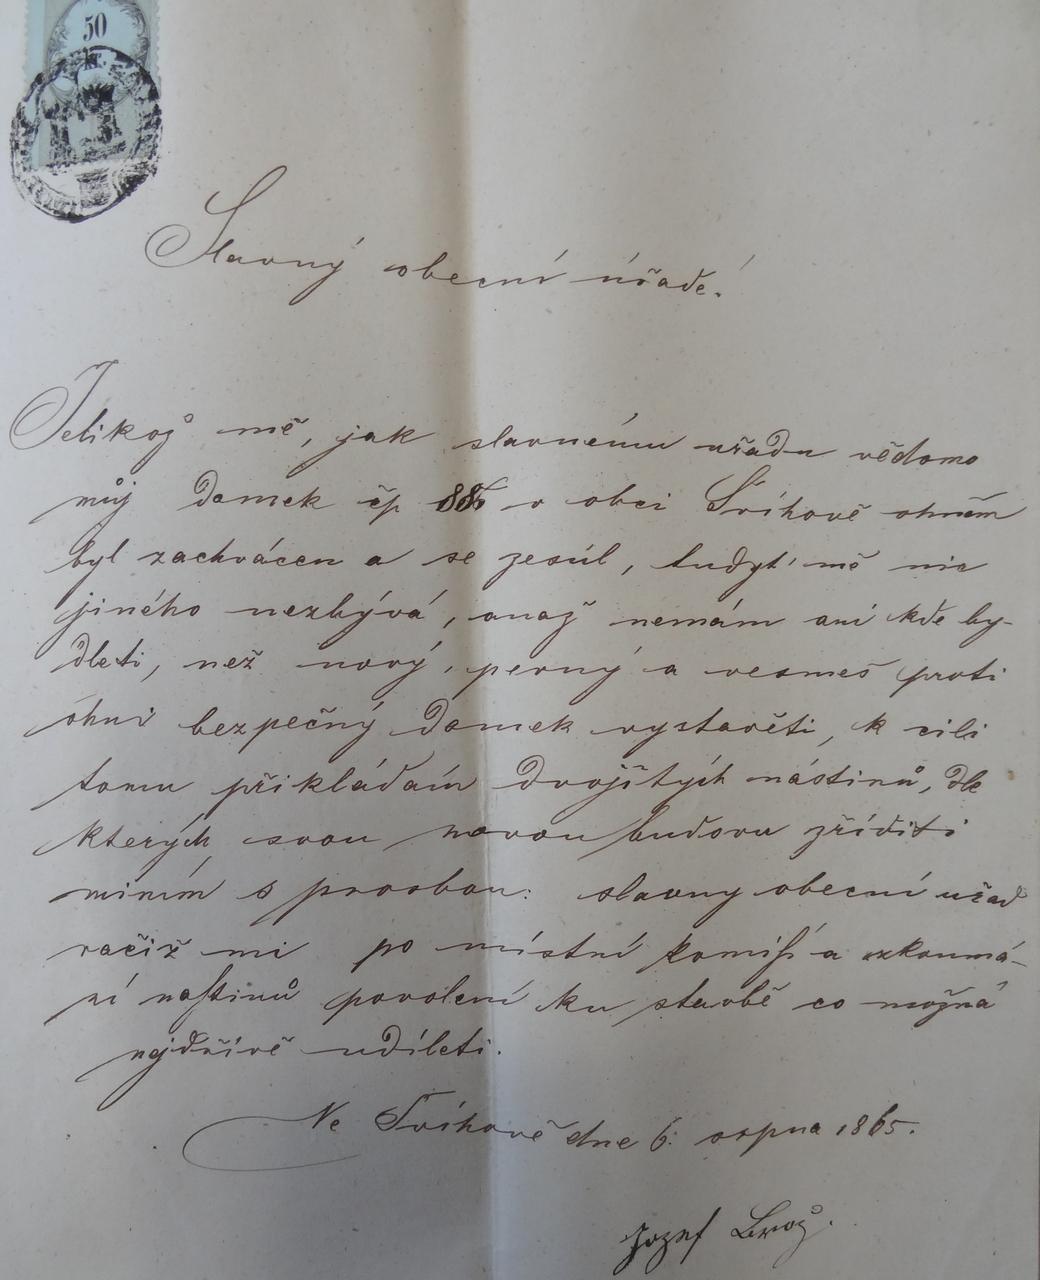 50
Slavný obecní úřade!
Jelikož mě, jak slavnému uřadu vědomo
můj domek čp 88 v obci Švihově ohněm
byl zachvácen a se zesul, tudyť mě nic
jiného nezbývá, anaž nemám ani kde by-
dleti, než nový, pevný a vesměs proti
ohni bezpečný domek vystavěti, k cili
tomu přikládám dvojitých nástinů, dle
kterých svou novou budovu zříditi
miním s prosbou: slavny obecní uřad
račiž mi po místní komisí a ozkoumá-
ní nastinů povolení ku stavbě co možná
nejdříve udíleti.
Ve Švihově dne 6. srpna 1865.
Jozef Brož.